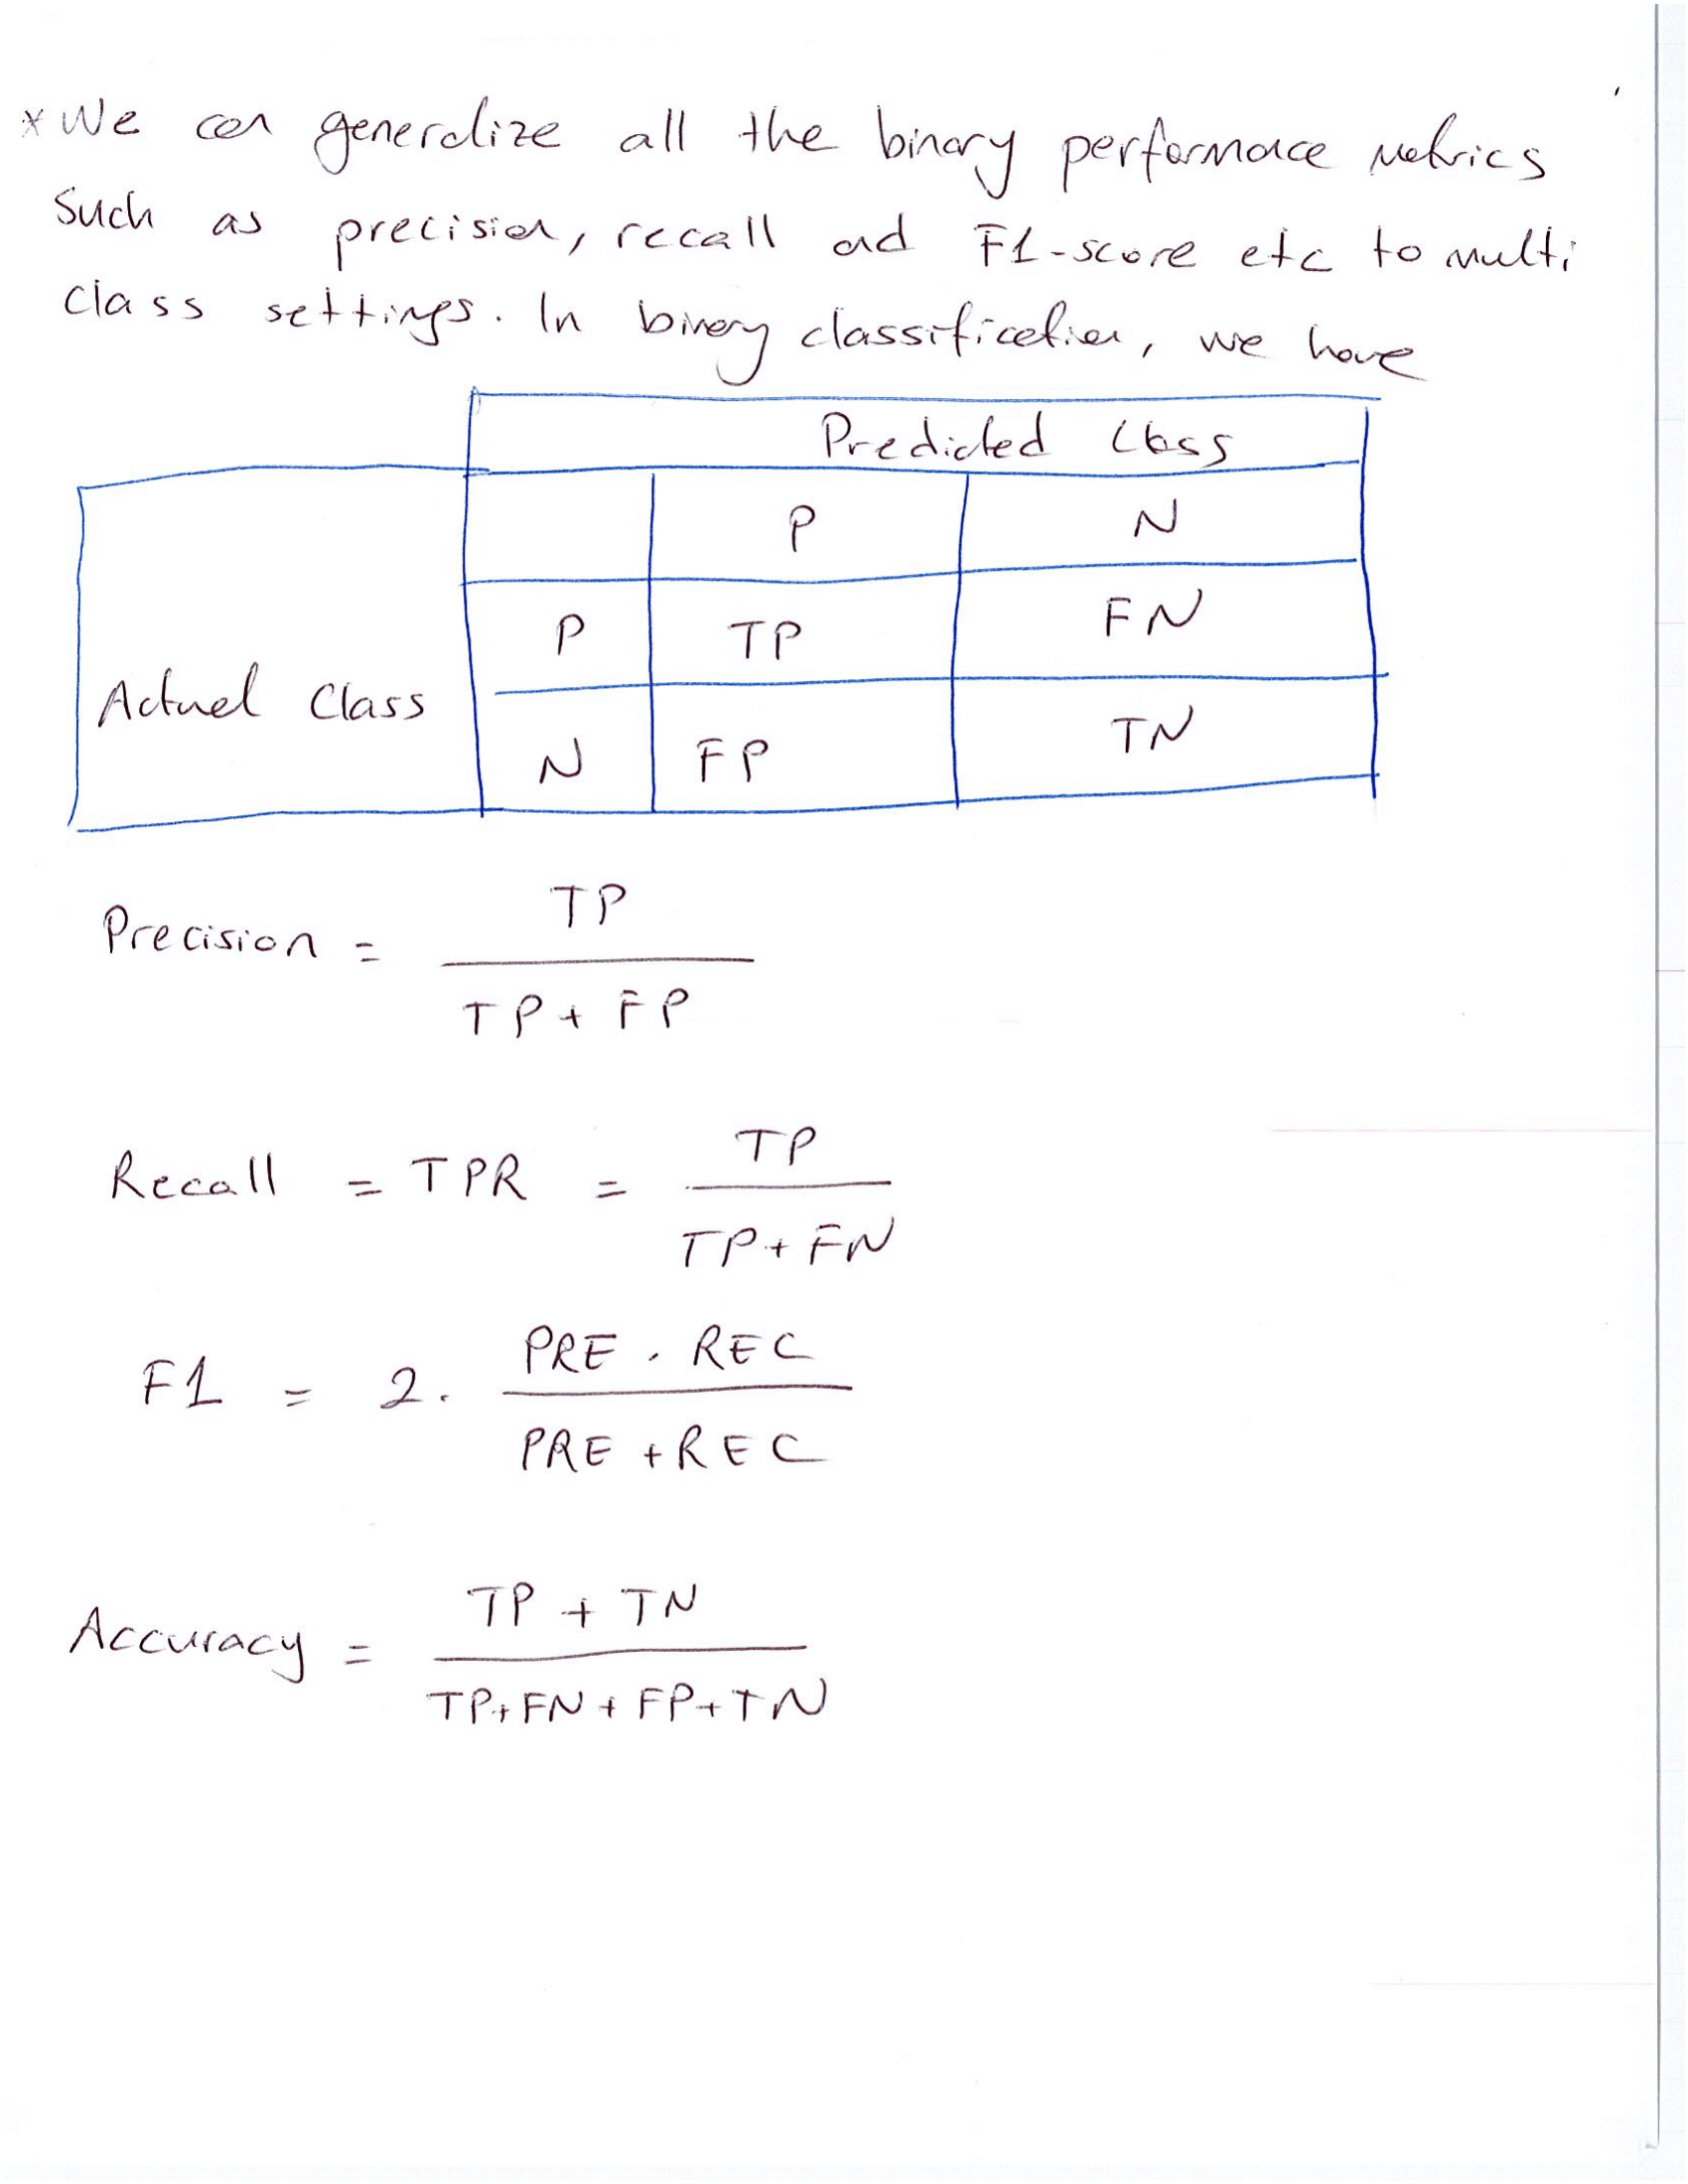 * We can generalize all the binary performance metrics
such as precision, recall and F1-score etc to multi
class settings. In binary classification, we have
Predicted Class
P N
P TP FN
Actual Class
N FP TN
Precision = TP / TP + FP
Recall = TPR = TP / TP + FN
F1 = 2 . PRE . REC / PRE + REC
Accuracy = TP + TN / TP + FN + FP + TN